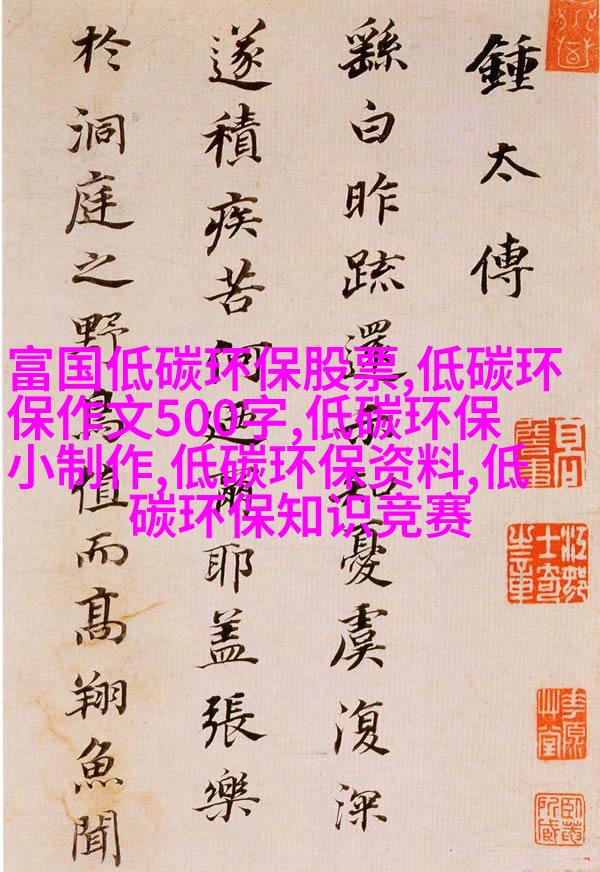 鍾太傅
繇白昨疏還示知憂虞復深
遂積疾苦何迺爾耶蓋張樂
於洞庭之野鳥值而高翔魚聞
富国低碳环保股票,低碳环
保作文500字,低碳环保
小制作,低碳环保资料,低
碳环保知识竞赛
江邨士奇之章